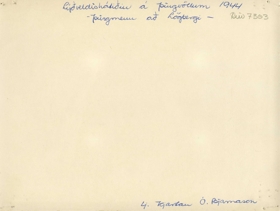 Lýðveldishátíðin á Þingvöllum 1944
- Þingmenn að Lögbergi -
4. Kjartan Ó. Bjarnason